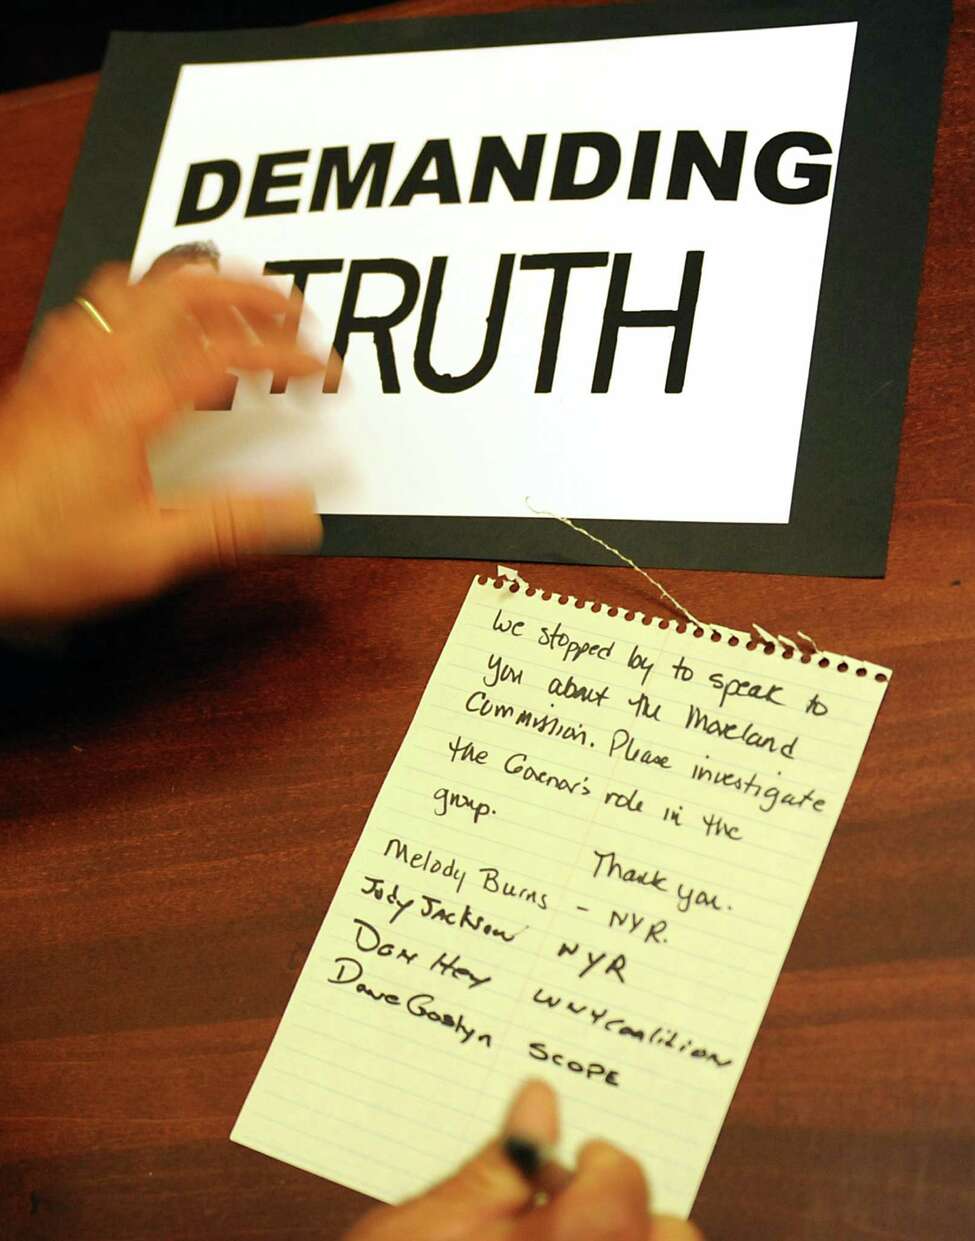 DEMANDING
TRUTH
We stopped by to speak to
you about the Moreland
Commission. Please investigate
the Govenor's role in the
group.
Thank you.
Melody Burns - NYR.
Judy Jackson NYR
Dan Hey WNYCoalition
Dave Gostyn SCOPE